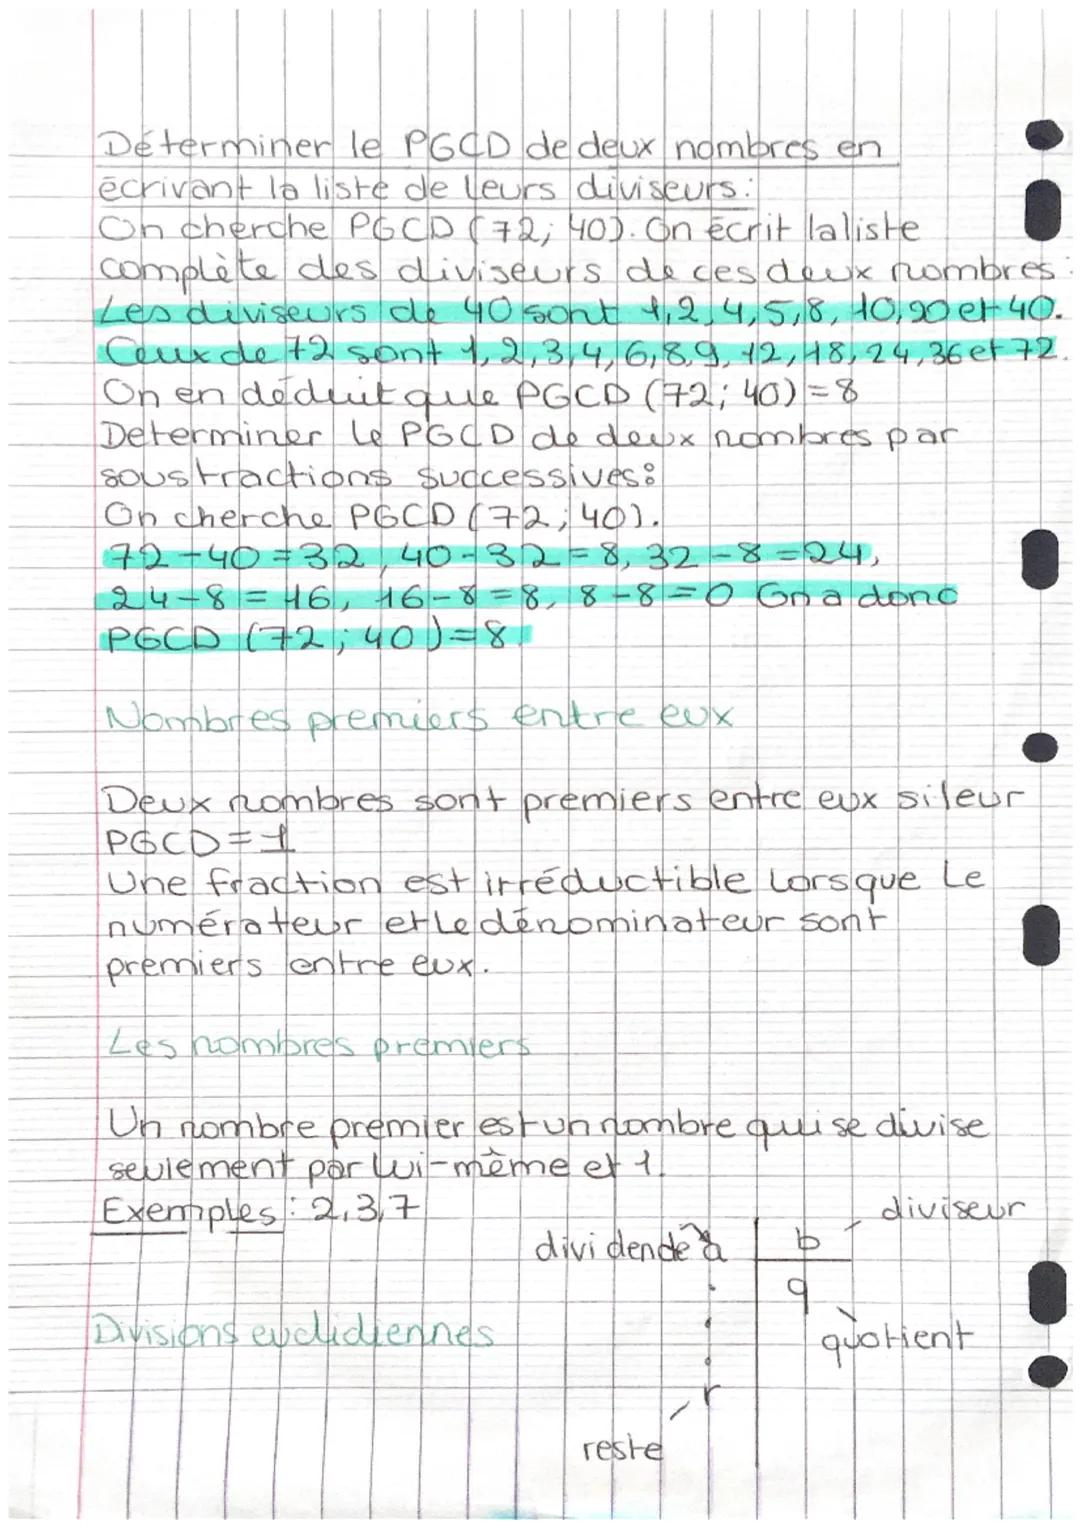 Déterminer le PGCD de deux nombres en
écrivant la liste de leurs diviseurs:
On cherche PGCD (72; 40). On écrit la liste
complète des diviseurs de ces deux nombres:
Les diviseurs de 40 sont 1, 2, 4, 5, 8, 10, 20 et 40.
Ceux de 72 sont 1, 2, 3, 4, 6, 8, 9, 12, 18, 24, 36 et 72.
On en déduit que PGCD (72; 40) = 8
Determiner le PGCD de deux nombres par
soustractions successives:
On cherche PGCD (72; 40).
72-40=32, 40-32=8, 32-8=24,
24-8=16, 16-8=8, 8-8=0 On a donc
PGCD (72; 40)=8.
Nombres premiers entre eux
Deux nombres sont premiers entre eux si leur
PGCD=1
Une fraction est irréductible lorsque le
numérateur et le dénominateur sont
premiers entre eux.
Les nombres premiers
Un nombre premier est un nombre qui se divise
seulement par lui-même et 1.
Exemples: 2,3,7
diviseur
dividende a b
q
Divisions euclidiennes
quotient
r
reste